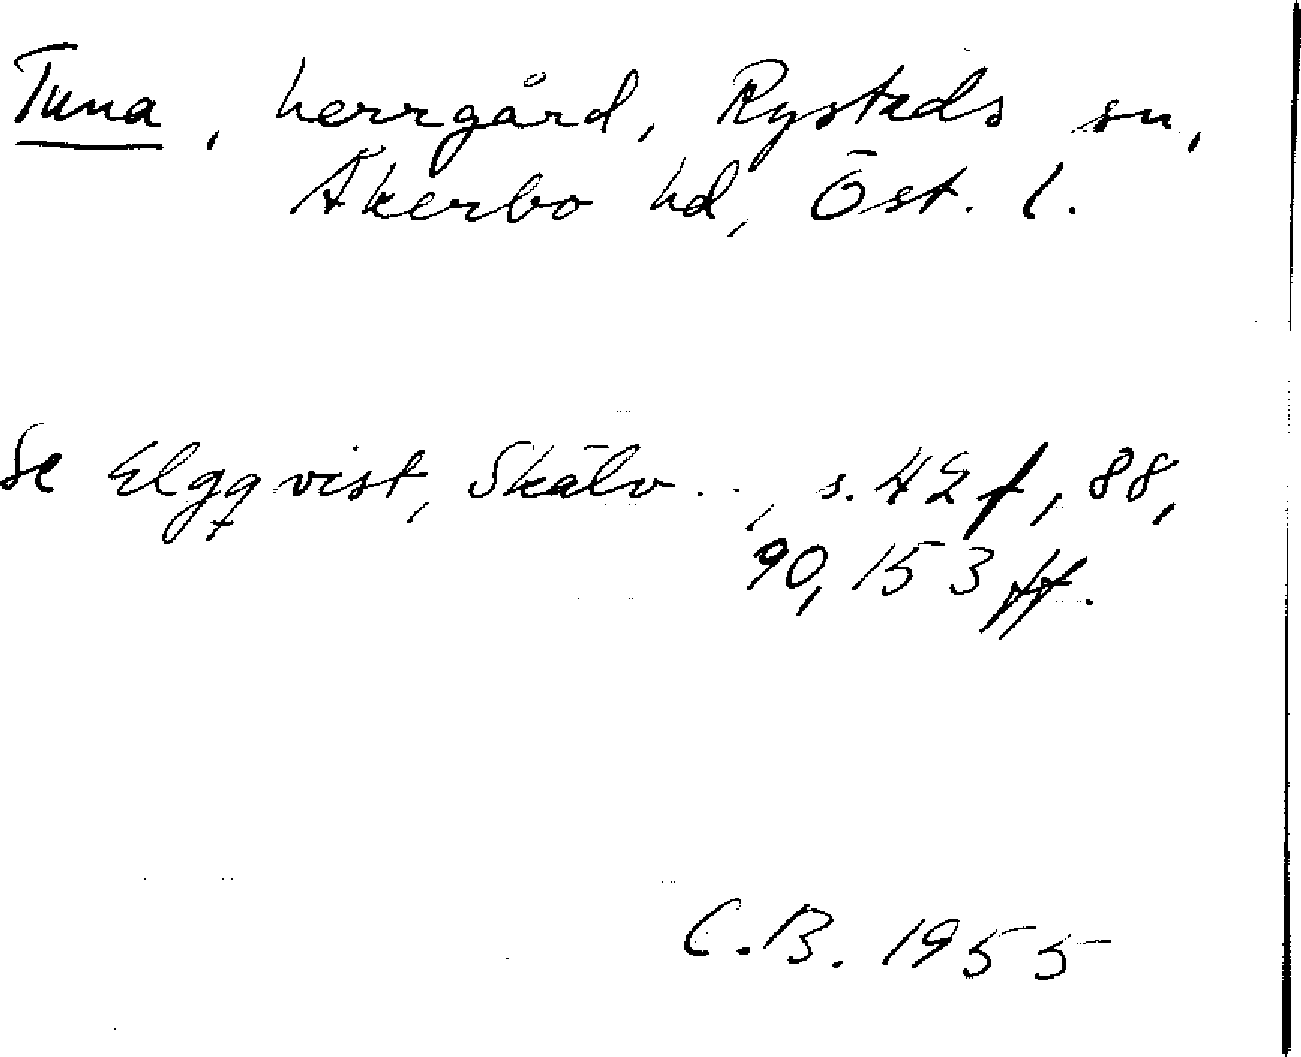 Tuna, herrgård, Rystads sn,
Åkerbo hd, Öst. l.
Se Elgqvist, Skälv..., s. 42 f, 88,
90, 153 ff.
C.B. 1955